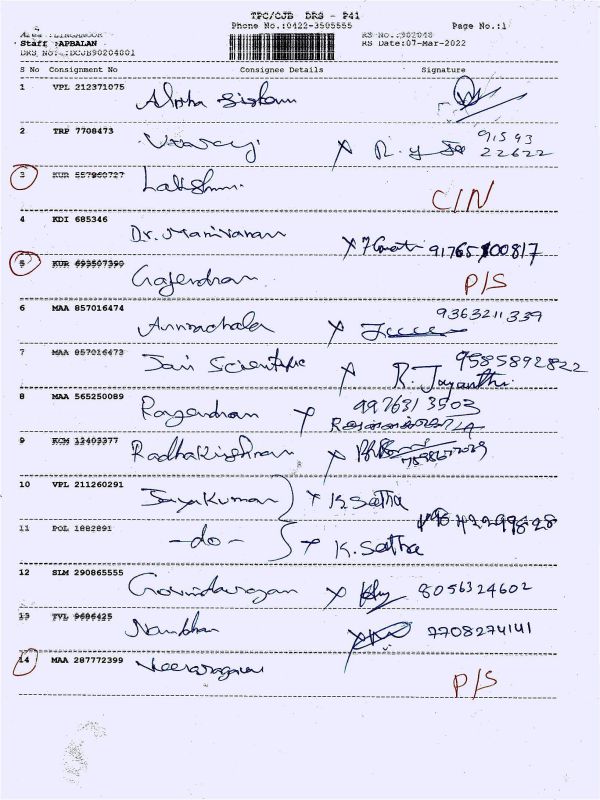 TPC/CJB DRS - P41
Phone No.:0422-3505555 Page No.:1
Area :LINGANOOR RS No.:902048
Staff :APBALAN RS Date:07-Mar-2022
DRS No.:DCJB90204801
S No Consignment No Consignee Details Signature
1 VPL 212371075 Alpha Sistom
2 TRP 7708473 R. 91593
22622
3 KUR 557960727 Lakshmi
C/N
4 KDI 685346 Dr. Manivanan x 91765 100817
5 KUR 693507390 Gajendran
P/S
6 MAA 857016474 Annachala x 9363211339
7 MAA 857016473 Jain Scientific x 9585892822
R. Jayanthi
8 MAA 565250089 Ragendran x 9976313503
9 KCM 12403377 Radhakrishnan x
10 VPL 211260291 Jayakumar x K. Satha
11 POL 1882891 -do- x K. Satha
12 SLM 290865555 Govindaragan x 8056324602
13 TVL 9696425 Nambhan 7708274141
14 MAA 287772399 Veeraragavan
P/S